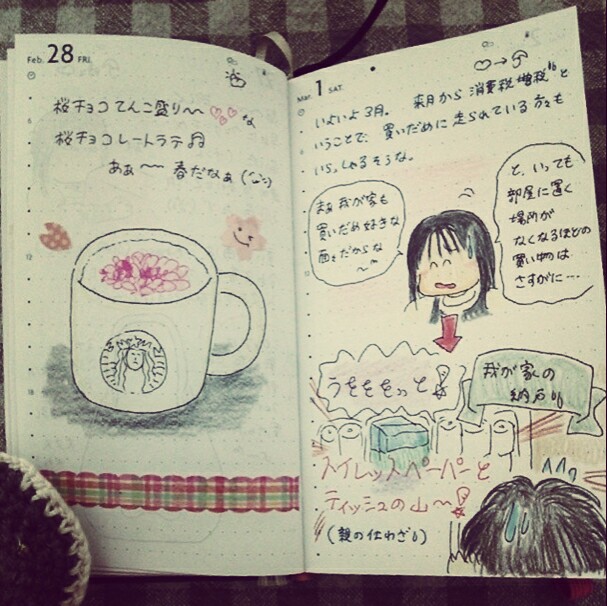 Feb. 28 FRI.
桜チョコてんこ盛り〜 な
桜チョコレートラテ♫
あぁ〜〜 春だなぁ
Mar. 1 SAT.
いよいよ3月。 来月から消費税増税と
いうことで、買いだめに走られている方々も
いらっしゃるそうな。
まぁ我が家も
買いだめ好きな
面々だからな
〜〜
と、いっても
部屋に置く
場所が
なくなるほどの
買い物は
さすがに…
うをををっと
我が家の
納戸
トイレットペーパーと
ティッシュの山〜
(親の仕わざ)